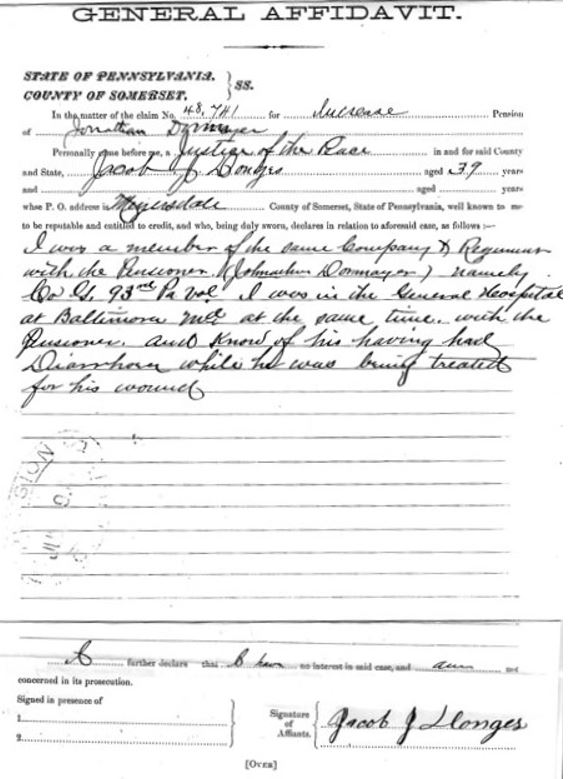 GENERAL AFFIDAVIT.
STATE OF PENNSYLVANIA,
COUNTY OF SOMERSET,
} SS.
In the matter of the claim No. 48,741 for Increase Pension
of Jonathan Dormayer
Personally came before me, a Justice of the Peace in and for said County
and State, Jacob J Donges aged 39 years
and aged years
whose P. O. address is Meyersdale County of Somerset, State of Pennsylvania, well known to me
to be reputable and entitled to credit, and who, being duly sworn, declares in relation to aforesaid case, as follows :—
I was a member of the same Company & Regiment
with the Pensioner (Johnathan Dormayer) namely
Co G, 93rd Pa Vol. I was in the General Hospital
at Baltimore Md at the same time. with the
Pensioner. and Know of his having had
Diarrhoea while he was being treated
for his wound
I further declare that I have no interest in said case, and am not
concerned in its prosecution.
Signed in presence of
1
2
Signature
of
Affiants.
Jacob J Donges
[OVER]